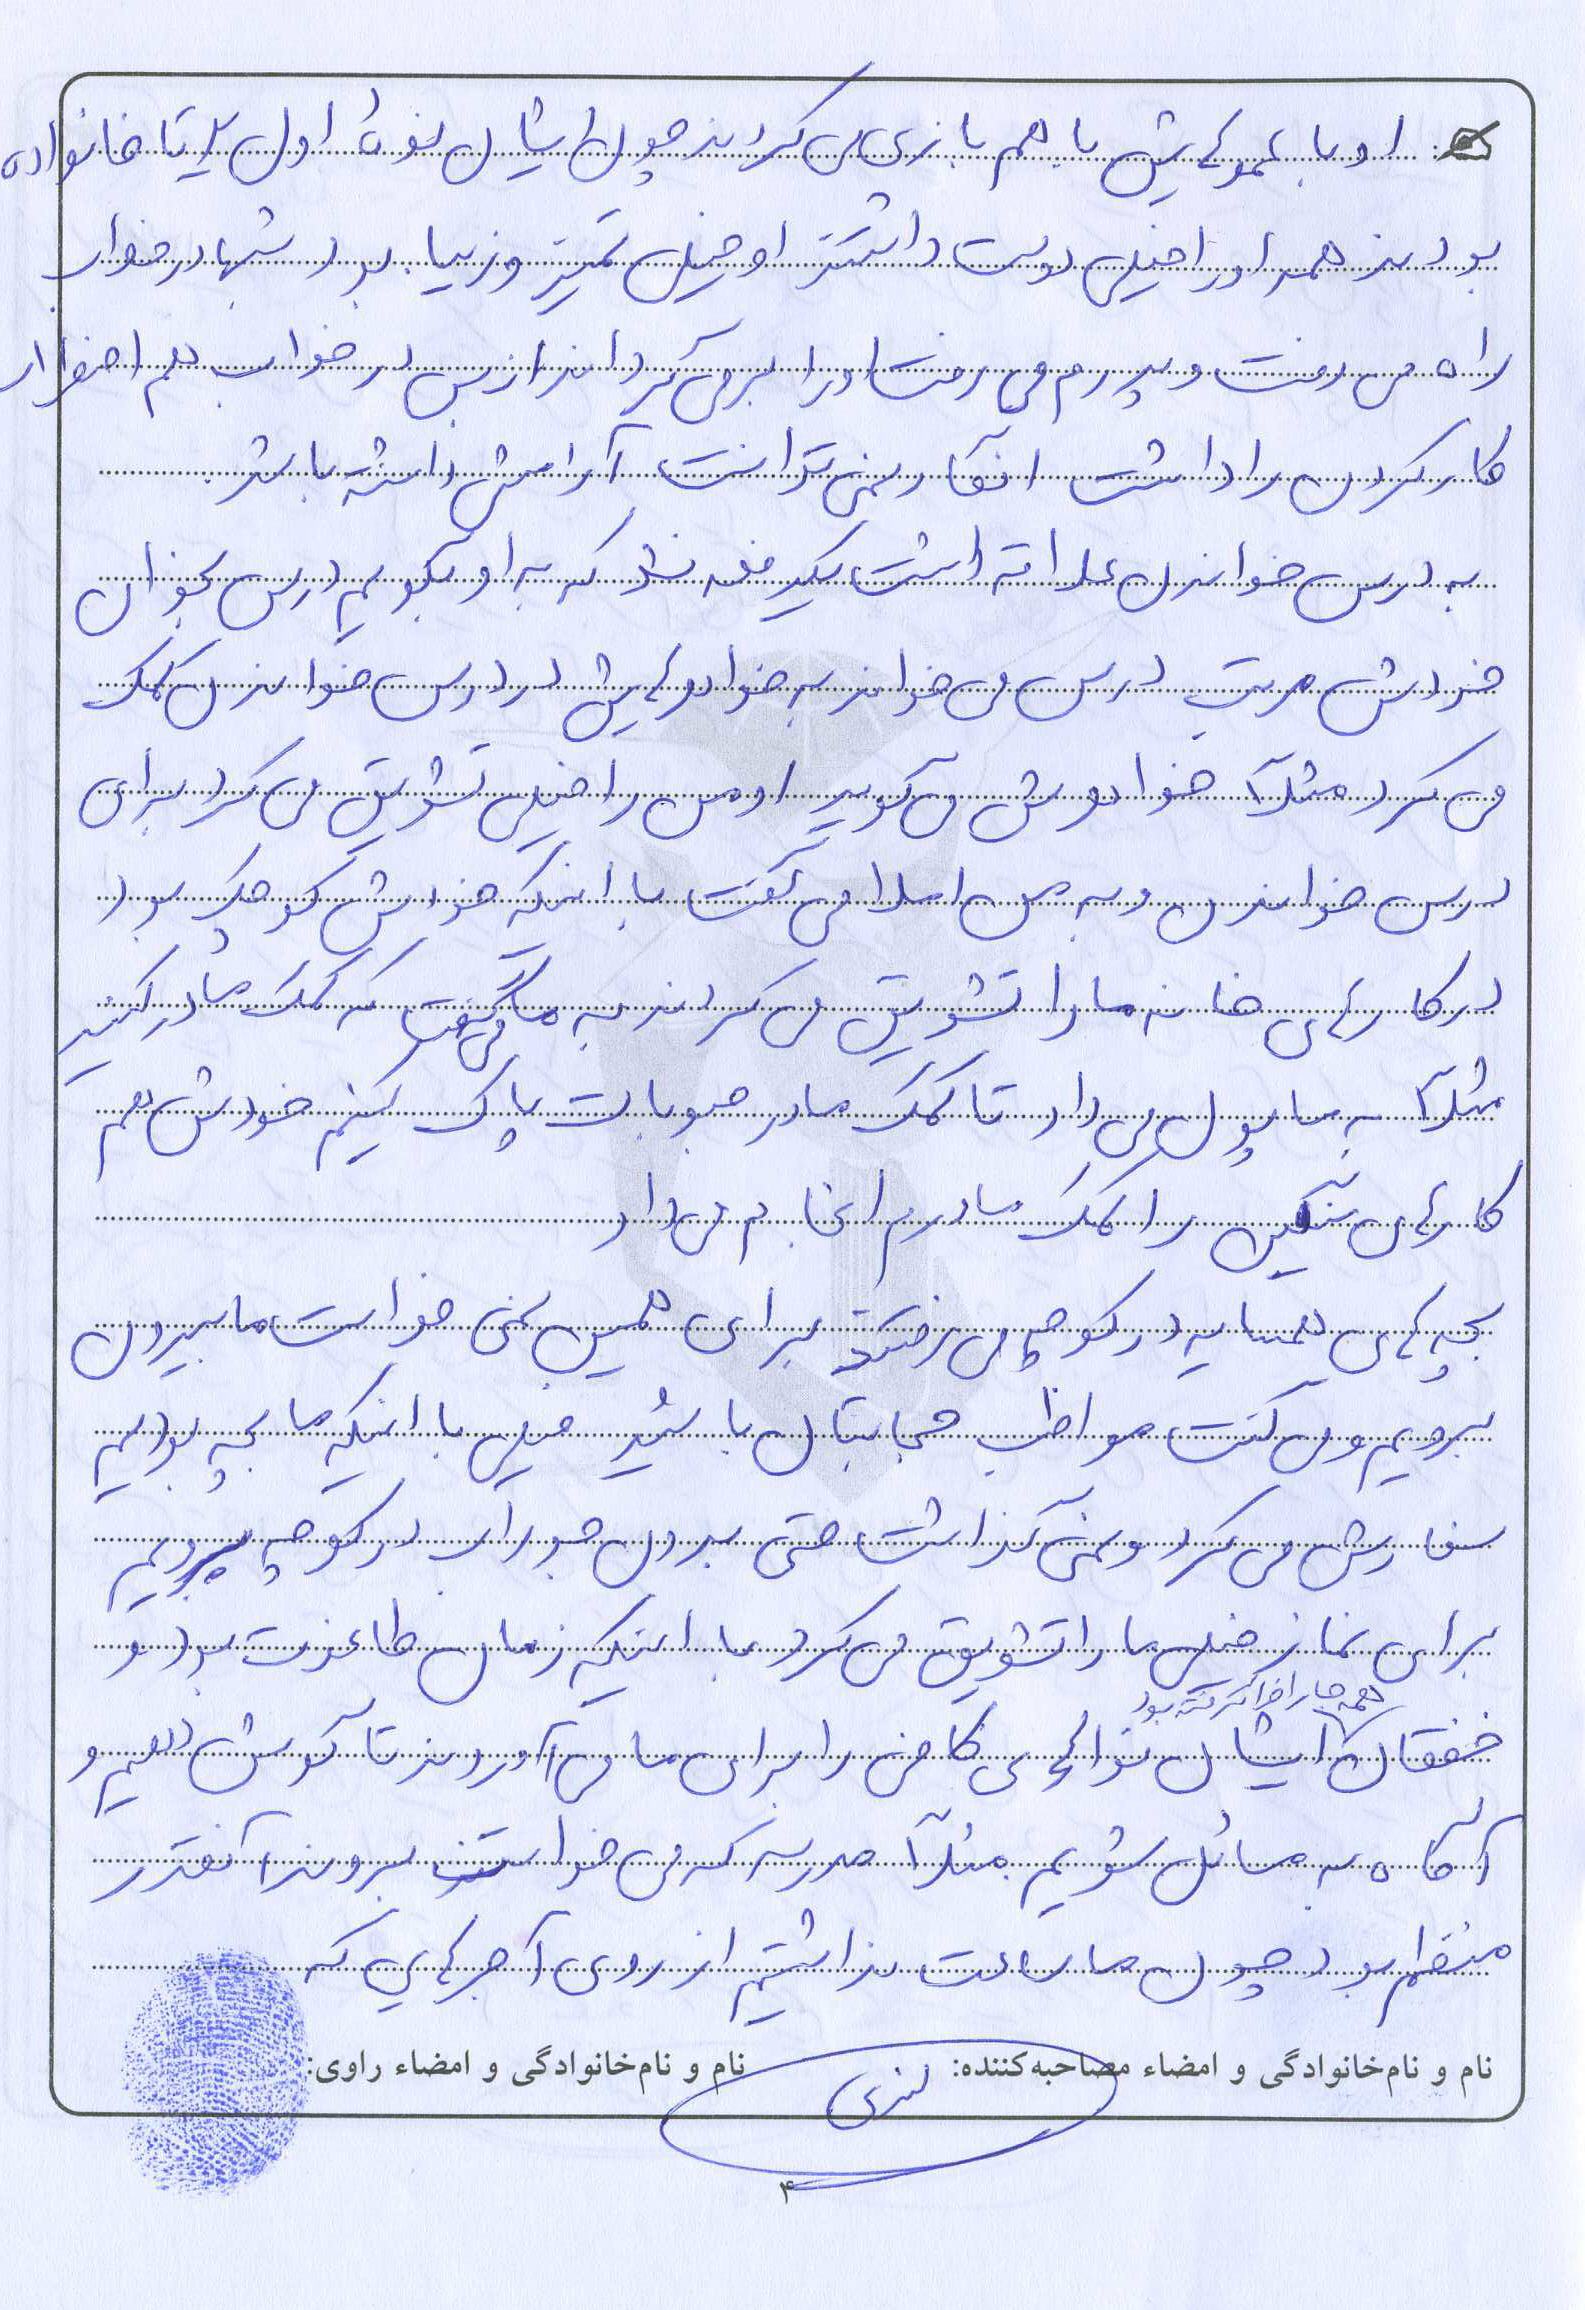 او با عموهایش با هم بازی می کردند چون ایشان نوهٔ اول یک تا خانواده
بودند همه او را خیلی دوست داشتند او خیلی تمیز و زیبا بود شبها در خواب
راه می رفت و پدرم می رفت او را برمی گرداند از بس در خواب هم اضطراب
کار کردن را داشت انگار نمی توانست آرامش داشته باشد.
به درس خواندن علاقه داشت یکدفعه نشد که به او بگویم درس بخوان
خودش مرتب درس می خواند به خواهرهایش در درس خواندن کمک
می کرد مثلاً خواهرش می گوید او من را خیلی تشویق می کرد برای
درس خواندن و به من املا می گفت با اینکه خودش کوچک بود
در کارهای خانه ما را تشویق می کردند به ما می گفت که کمک مادر کنید
مثلاً به ما پول می داد تا کمک مادر حبوبات پاک کنیم خودش هم
کارهای سنگین را کمک مادرم انجام می داد
بچه های همسایه در کوچه می رفتند برای همین نمی خواست ما بیرون
برویم و می گفت مواظب حجابتان باشید خیلی با اینکه ما بچه بودیم
سفارش می کرد و نمی گذاشت حتی بدون جوراب در کوچه برویم
برای نماز خیلی ما را تشویق می کرد با اینکه زمان طاغوت بود و
همه جا را فرا گرفته بود
خفقان ایشان نوارهای کافی را برای ما می آوردند تا گوش دهیم و
آگاه به مسائل شویم مثلاً مدرسه که می خواستند بروند آنقدر
منظم بود چون ما ساعت نداشتیم از روی آجرهایی که
نام و نام‌خانوادگی و امضاء مصاحبه‌کننده:
نام و نام‌خانوادگی و امضاء راوی:
۴